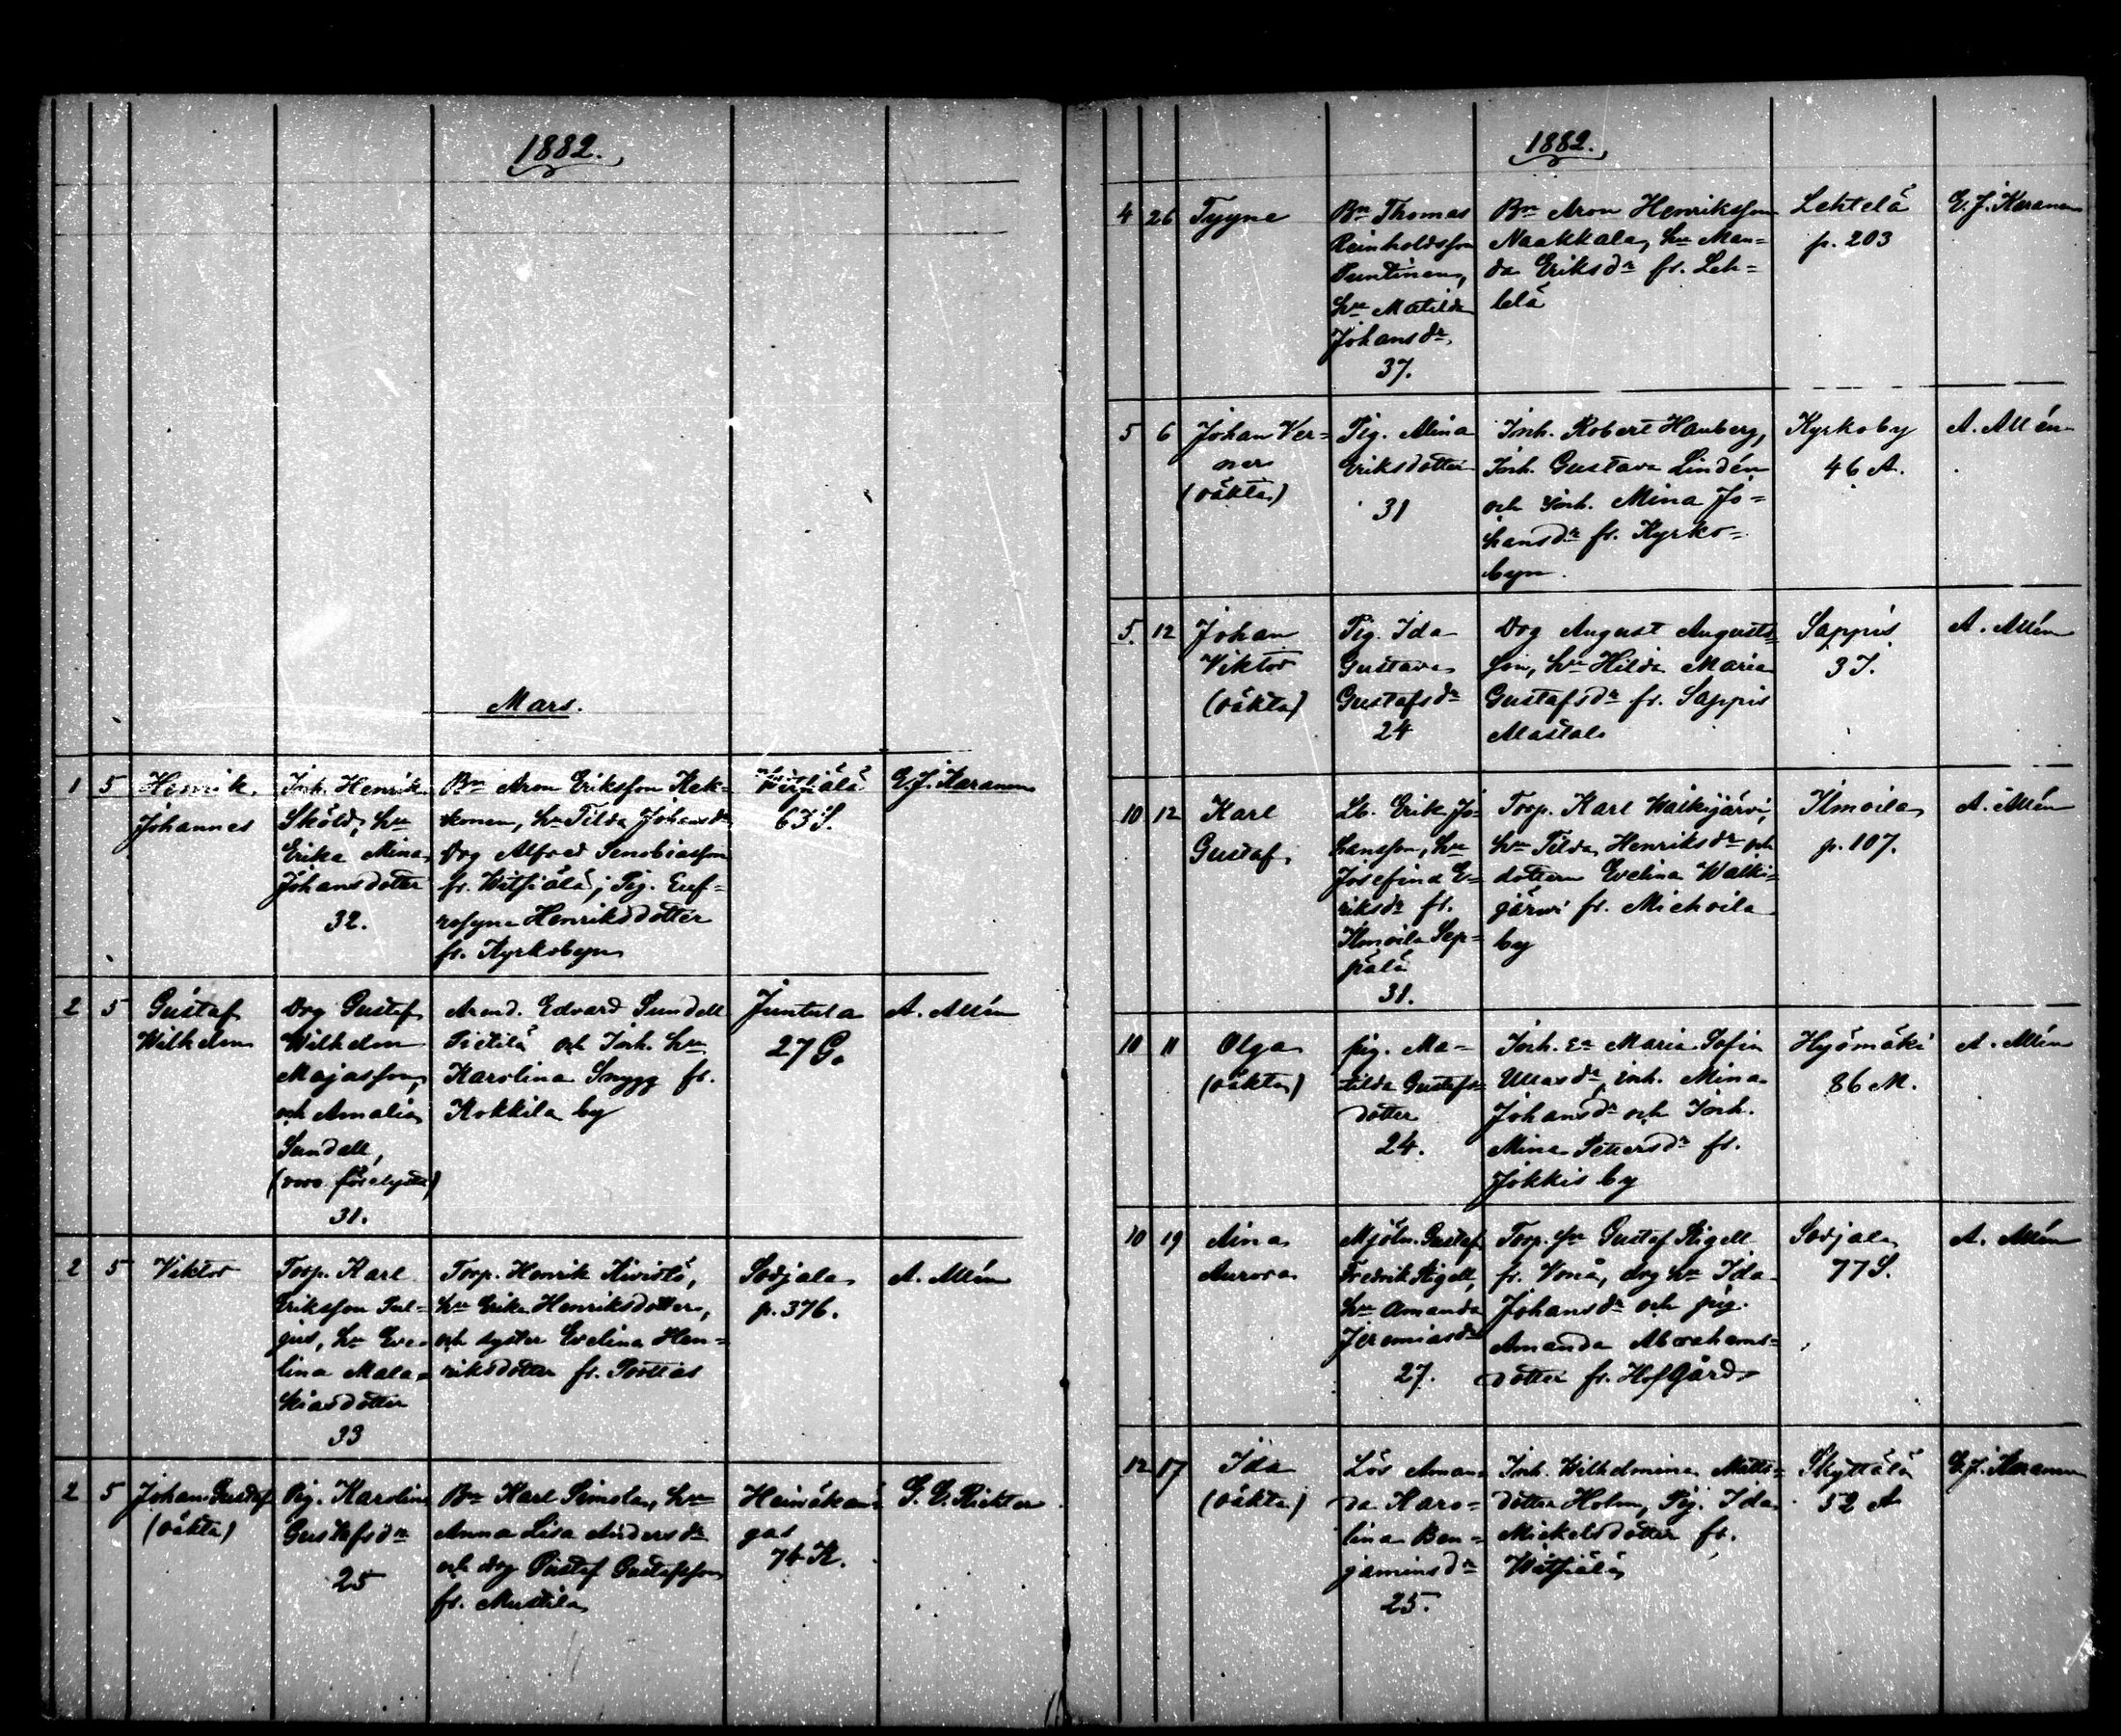 1882.
Mars.
1 5 Henrik Johannes
Inh. Henrik
Sköld, hu
Erika Mina
Johansdotter
32.
Bn Aron Eriksson Kek-
konen, hu Tilda Johansdr
Drg Alfred Senobiasson
fr. Witsiälä; Pig. Euf-
rosyne Henriksdotter
fr. Kyrkobyn
63 S.
E. J. Karanen
2 5 Gustaf Wilhelm
Drg Gustaf
Wilhelm
Majasson,
och Amalia
Sundell,
31.
Arend. Edvard Sundell
Pietilä och Inh. hu
Karolina Snygg fr.
Kokkila by
Juntula
27 G.
A. Allén
2 5 Viktor
Torp. Karl
Eriksson Pal-
jus, hu Eve-
lina Mala-
kiasdotter
33
Torp. Henrik Kivistö,
hu Erika Henriksdotter,
och syster Evelina Hen-
riksdotter fr. Porttas
Sorjala
p. 376.
A. Allén
2 5 Johan Gustaf
(oäkta)
Pig. Karolina
Gustafsdr
25
Bn Karl Simola, hu
Anna Lisa Andersdr
och drg Gustaf Gustafsson
fr. Mustila
Heinäkan-
gas
74 K.
G. E. Richter
1882.
4 26 Tyyne
Bn Thomas
Reinholdsson
Puntinen,
hu Matilda
Johansdr
37.
Bn Aron Henriksson
Naakkala, hu Man-
da Eriksdr fr. Leh-
telä
Lehtelä
p. 203
E. J. Karanen
5 6 Johan Ver-
ner
(oäkta)
Pig. Mina
Eriksdotter
31
Inh. Robert Hauberg,
Inh. Gustava Lindén
och inh. Mina Jo-
hansdr fr. Kyrko-
byn.
Kyrkoby
46 A.
A. Allén
5. 12 Johan
Viktor
(oäkta)
Pig. Ida
Gustava
Gustafsdr
24
Drg August Augusts-
son, hu Hilda Maria
Gustafsdr fr. Sappis
Alastalo
Sappis
3 I.
A. Allén
10 12 Karl
Gustaf
Lb. Erik Jo-
hansson, hu
Josefina E-
riksdr fr.
Ilmoila Sep-
pälä
31.
Torp. Karl Walkijärvi,
hu Tilda Henriksdr och
dottern Evelina Walki-
järwi fr. Michoila
by
Ilmoila
p. 107.
A. Allén
10 11 Olga
(oäkta)
pig. Ma-
tilda Gustafs-
dotter
24.
Inh. ea Maria Sofia
Ullasdr, inh. Mina
Johansdr och Inh.
Mina Pettersdr fr.
Jokkis by
Hyömäki
86 M.
A. Allén
10 19 Aina
Aurora
Mjöln. Gustaf
Fredrik Stigell,
hu Amanda
Jeremiasdr
27.
Torp. sn Gustaf Stigell
fr. Vonå, drg hu Ida
Johansdr och pig.
Amanda Abrahams-
dotter fr. Hofgård
Sorjala
77 S.
A. Allén
12 17 Ida
(oäkta)
Lös Aman-
da Karo-
lina Ben-
jaminsdr
25.
Inh. Wilhelmina Matts-
dotter Holm, Pig. Ida
Mickelsdotter fr.
Witsiälä
Skyttälä
52 A
E. J. Karanen